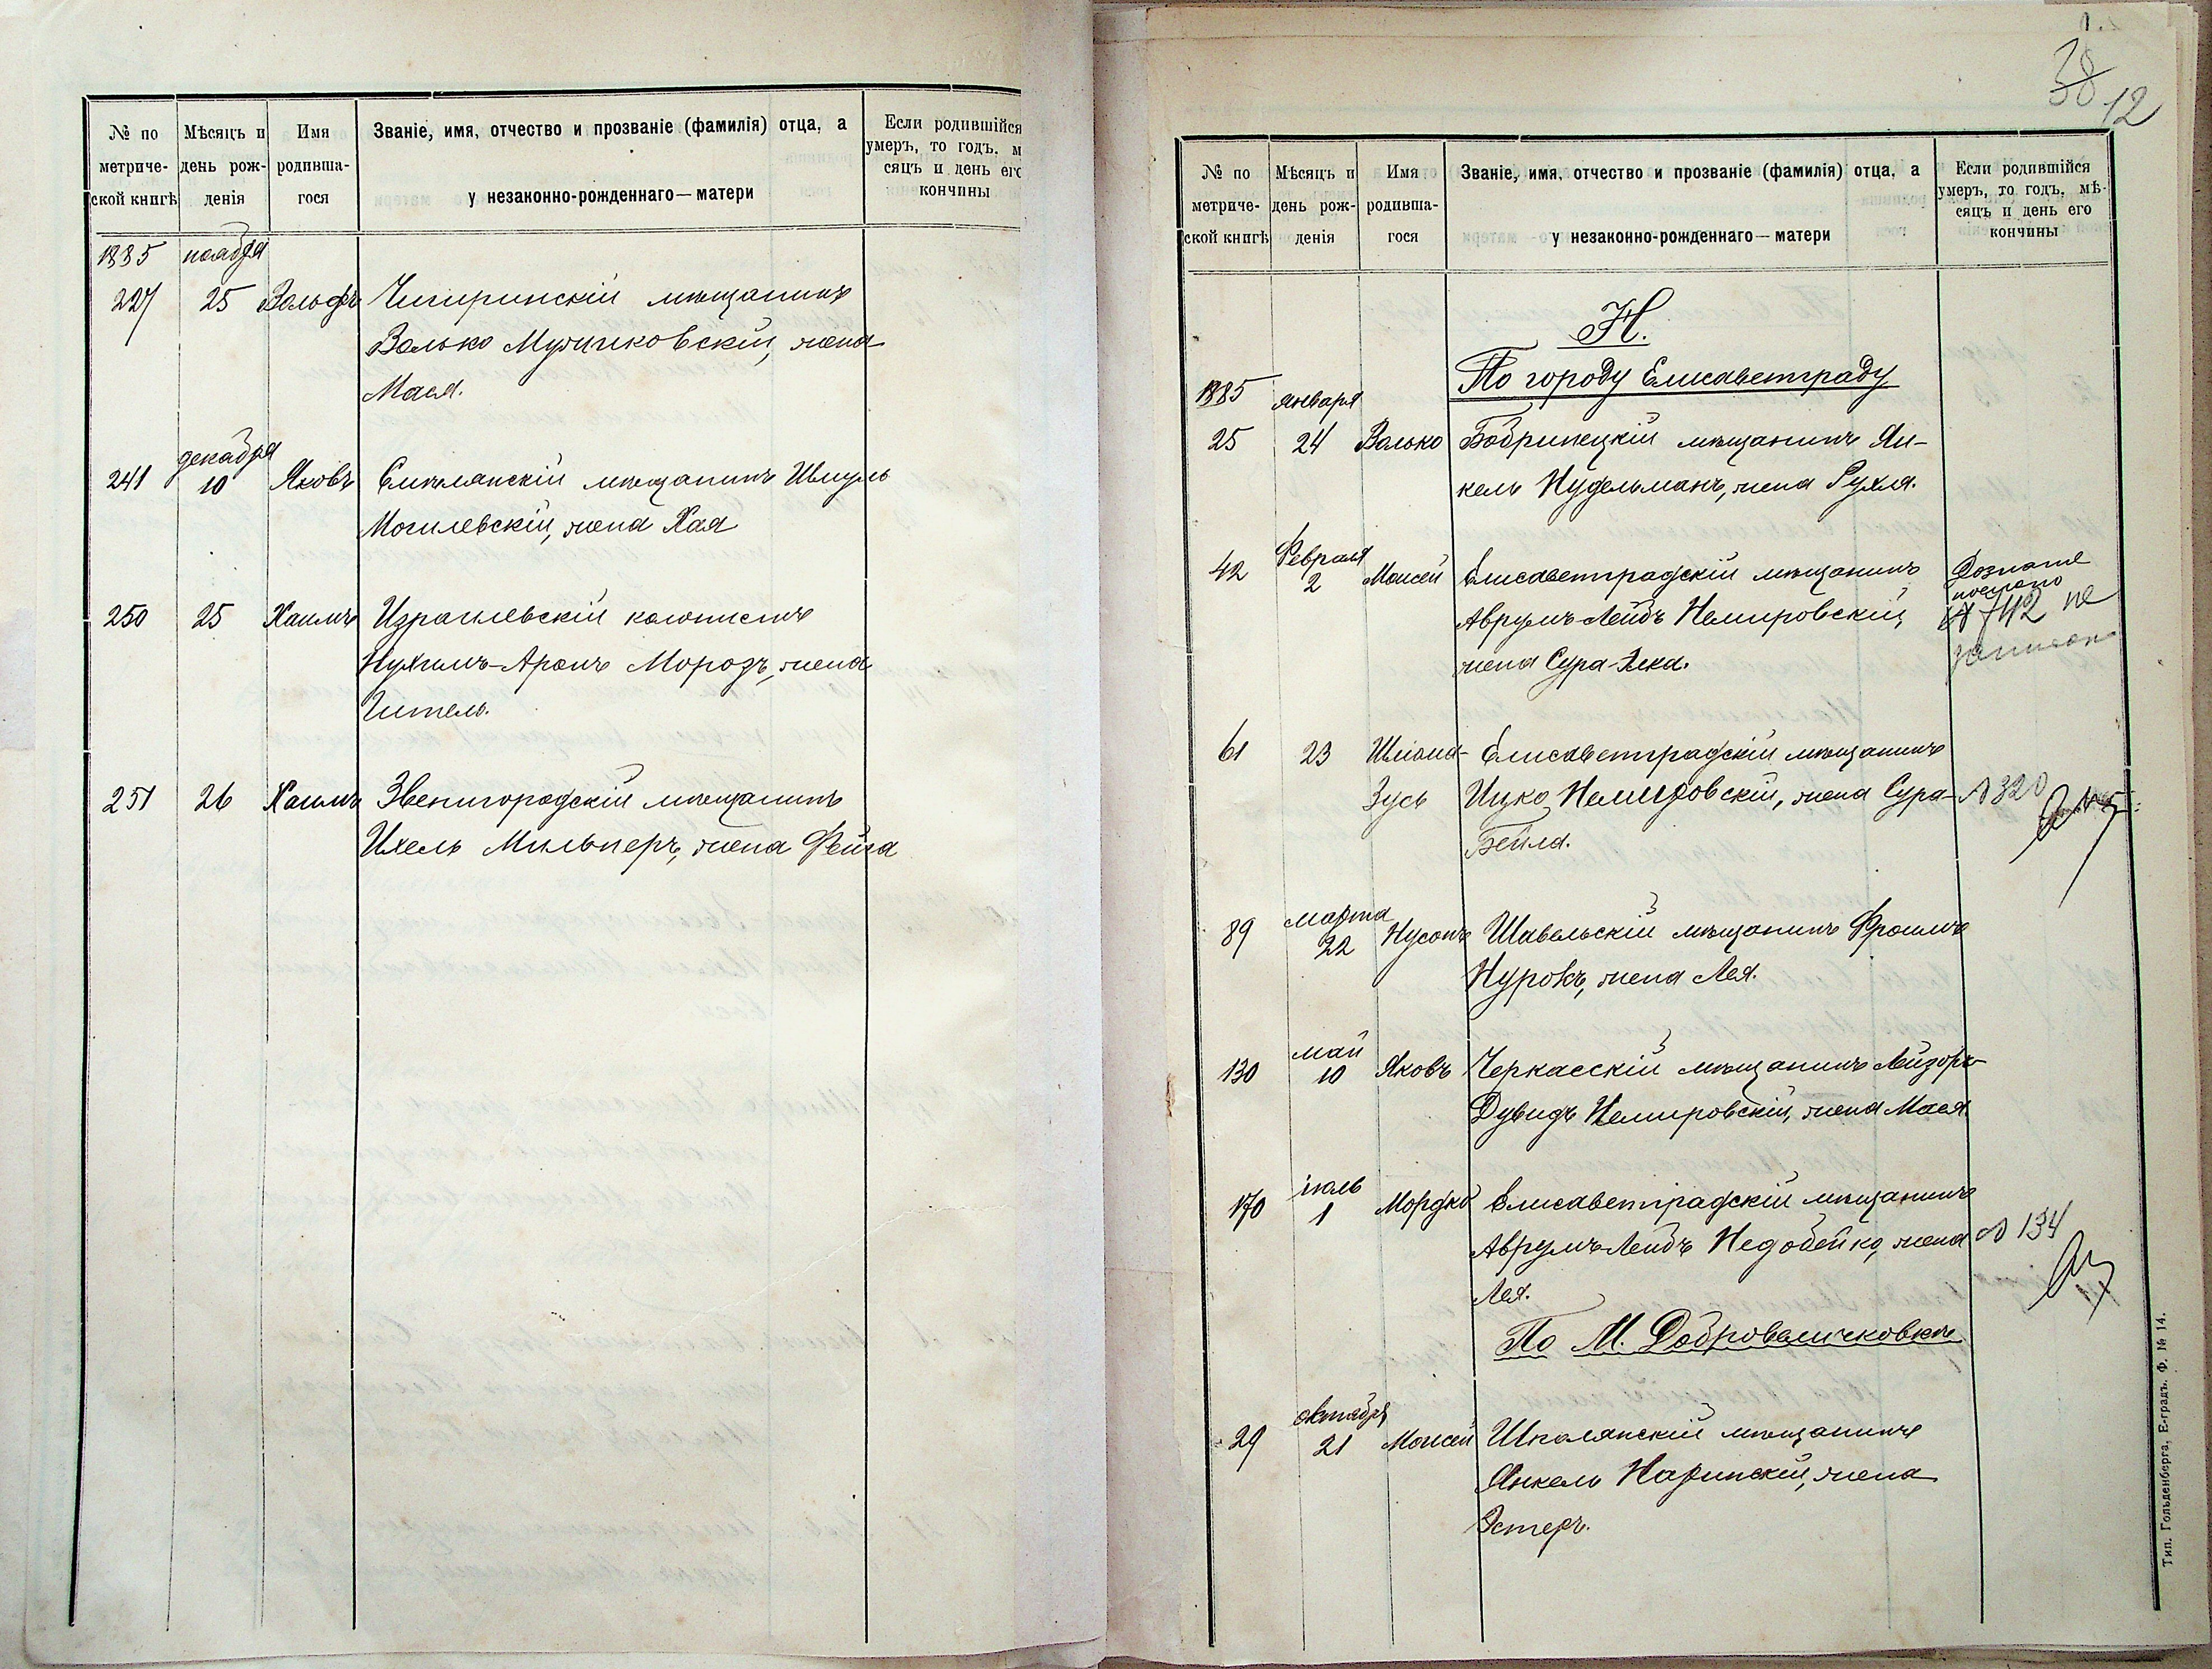 № по метриче-ской книгѣ
Мѣсяцъ и день рож-денія
Имя родивша-гося
Званіе, имя, отчество и прозваніе (фамилія) отца, а
у незаконно-рожденнаго—матери
Если родившійся
умеръ, то годъ, м
сяцъ и день его
кончины
1885 ноября
227 25 Вольфъ Чигиринскій мѣщанинъ
Волько Мужиковскій, жена
Мася.
декабря
241 10 Яковъ Смѣлянскій мѣщанинъ Шмуль
Могилевскій, жена Хая
250 25 Хаимъ Израилевскій колонистъ
Нухимъ-Аронъ Морозъ, жена
Гитель.
251 26 Хаимъ Звенигородскій мѣщанинъ
Ихель Мильнеръ, жена Фейга
38
12
№ по метриче-ской книгѣ
Мѣсяцъ и день рож-денія
Имя родивша-гося
Званіе, имя, отчество и прозваніе (фамилія) отца, а
у незаконно-рожденнаго—матери
Если родившійся
умеръ, то годъ, мѣ-
сяцъ и день его
кончины
Н.
По городу Елисаветграду
1885 января
25 24 Волько Бобринецкій мѣщанинъ Ян-
кель Нудельманъ, жена Рухля.
февраля
42 2 Моисей Елисаветградскій мѣщанинъ
Аврумъ-Лейбъ Немировскій,
жена Сура-Элка.
№ 742 не
записан
61 23 Шліома- Елисаветградскій мѣщанинъ
Зусь Ицко Немировскій, жена Сура- № 320
Бейла.
марта
89 22 Нусонъ Шавельскій мѣщанинъ Фроимъ
Нурокъ, жена Лея.
май
130 10 Яковъ Черкасскій мѣщанинъ Лейзоръ
Дувидъ Немировскій, жена Мася.
іюль
170 1 Мордко Елисаветградскій мѣщанинъ
Аврумъ Лейбъ Недобейко, жена № 134
Лея.
По М. Добровеличковкѣ
октября
29 21 Моисей Шполянскій мѣщанинъ
Янкель Наринскій, жена
Эстеръ.
Тип. Гольденберга, Е-градъ. Ф. № 14.